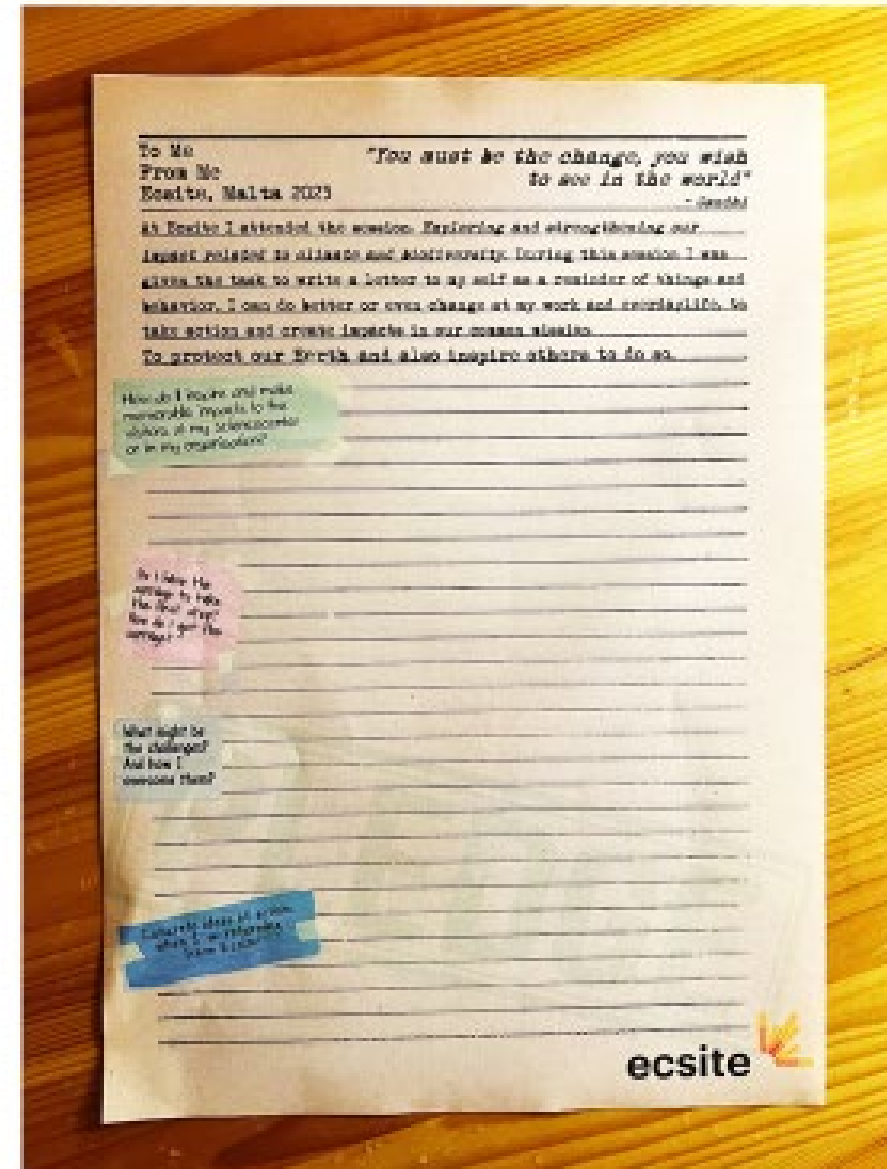 To Me
From Me
Ecsite, Malta 2023
"You must be the change, you wish
to see in the world"
- Gandhi
At Ecsite I attended the session. Exploring and strengthening our
impact related to climate and biodiversity. During this session I was
given the task to write a letter to my self as a reminder of things and
behavior, I can do better or even change at my work and everdaylife, to
take action and create impacts in our common mission
To protect our Earth and also inspire others to do so.
How do I inspire and make
memorable impacts to the
visitors at my sciencecenter
or in my organisation?
Do I have the
courage to take
the first step?
How do I get the
courage?
What might be
the challenges?
And how I
overcome them?
steps of action
when I'm returning
from
ecsite